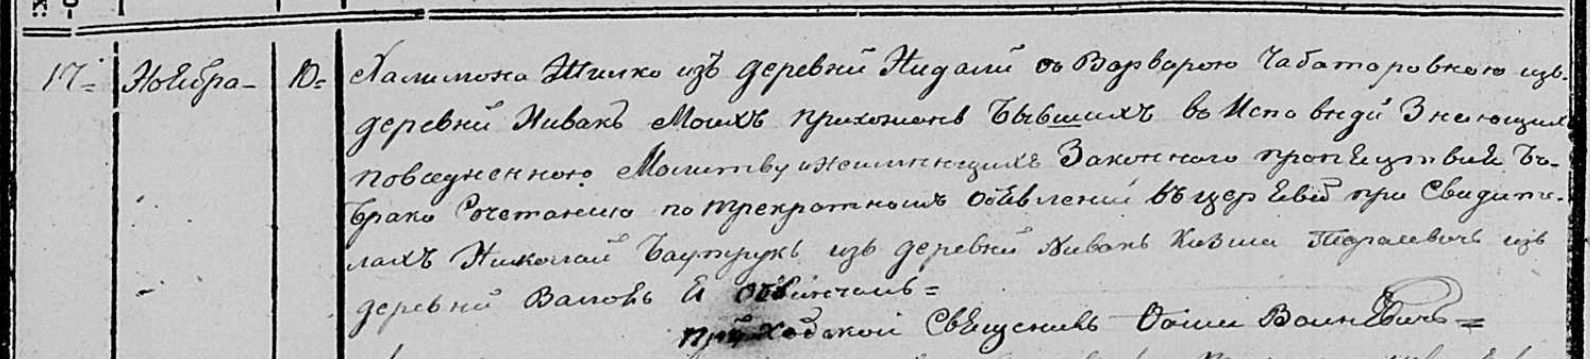 17 = Ноября - 10 = Халимона Жилко изъ деревни Нидали съ Варварою Чабатаровною изъ
деревни Нивакъ Моихъ прихожанъ Бывшихъ въ Исповѣди Знающихъ
повседневною Молитву инеимѣющихъ Законнаго препятствия Бо-
брако Сочетанию по трекратномъ объявлении въ церкви при Свидите-
лахъ Николай Баутрукъ изъ деревни Нивакъ Казма Тарасевичъ изъ
деревни Валовъ Я обвинчалъ =
приходской Священикъ Войневичъ =